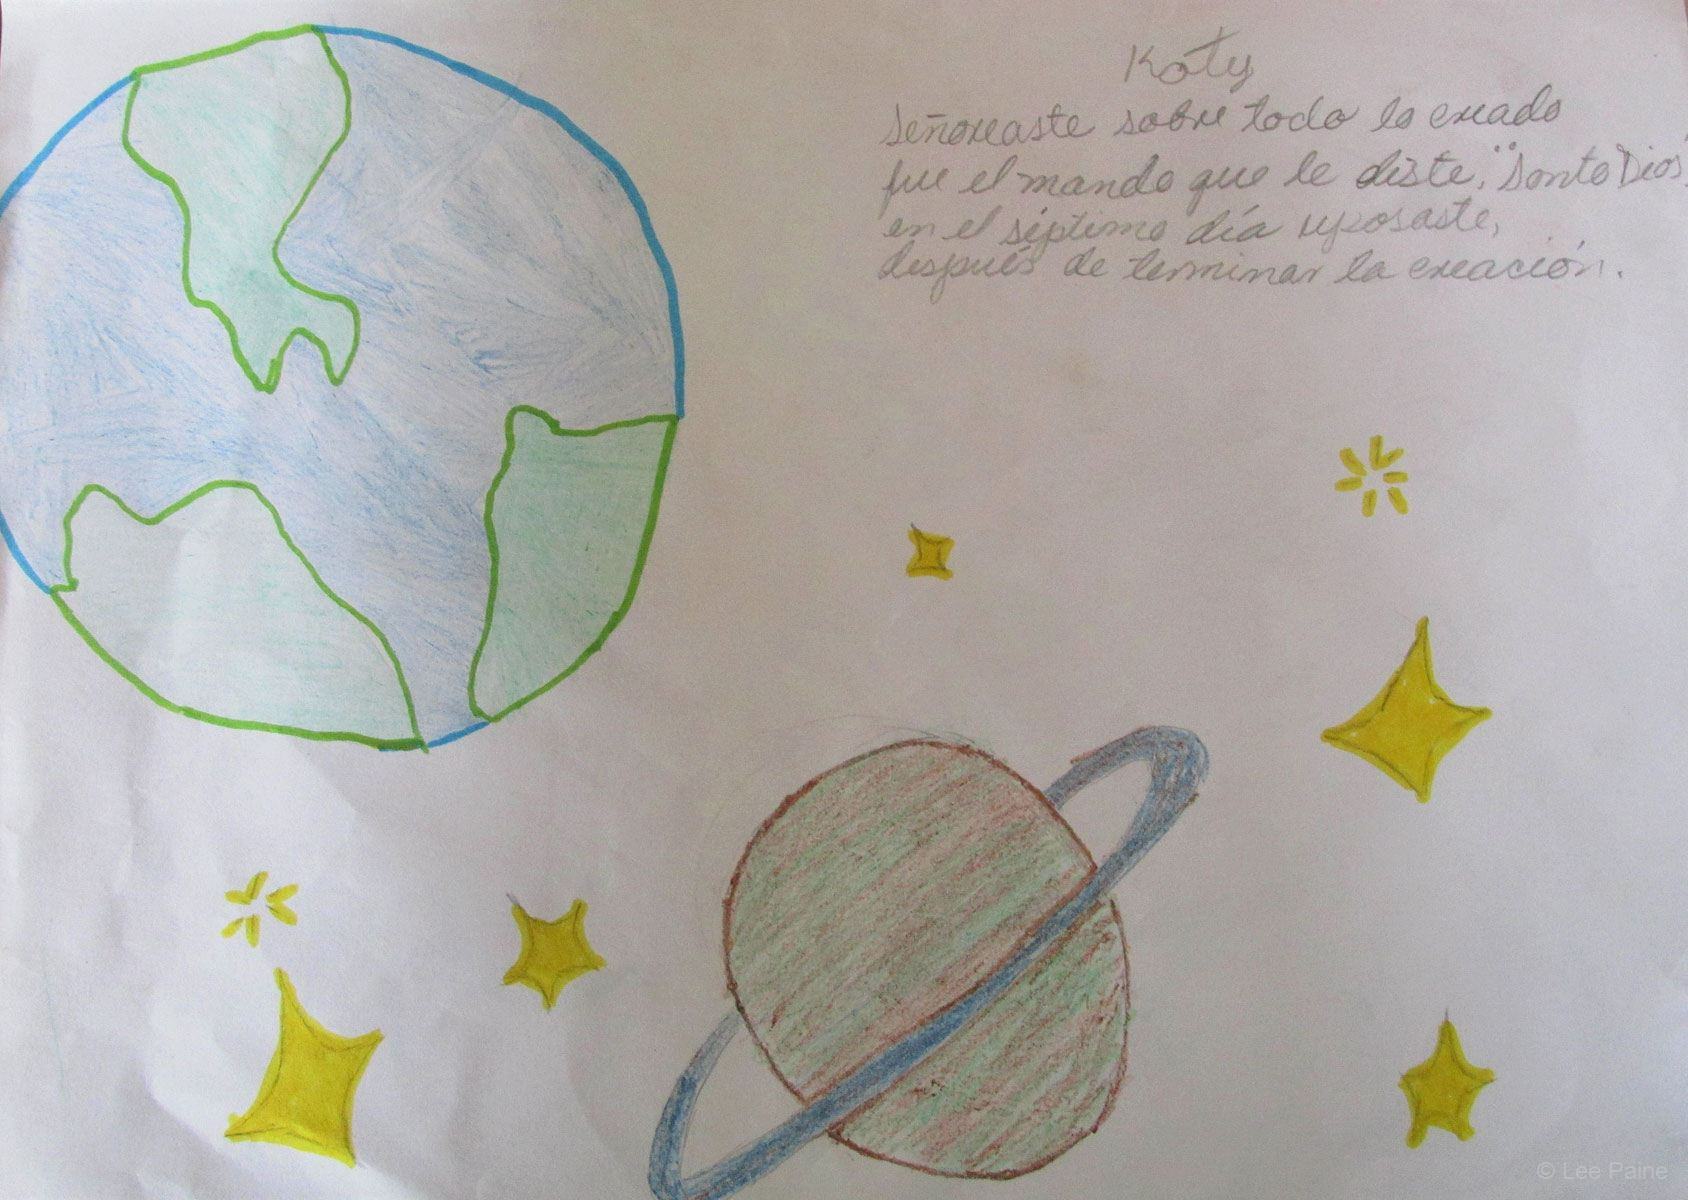 Katy
Señoreaste sobre todo lo creado
fue el mando que le diste, "Santo Dios",
en el séptimo día reposaste,
después de terminar la creación.
© Lee Paine